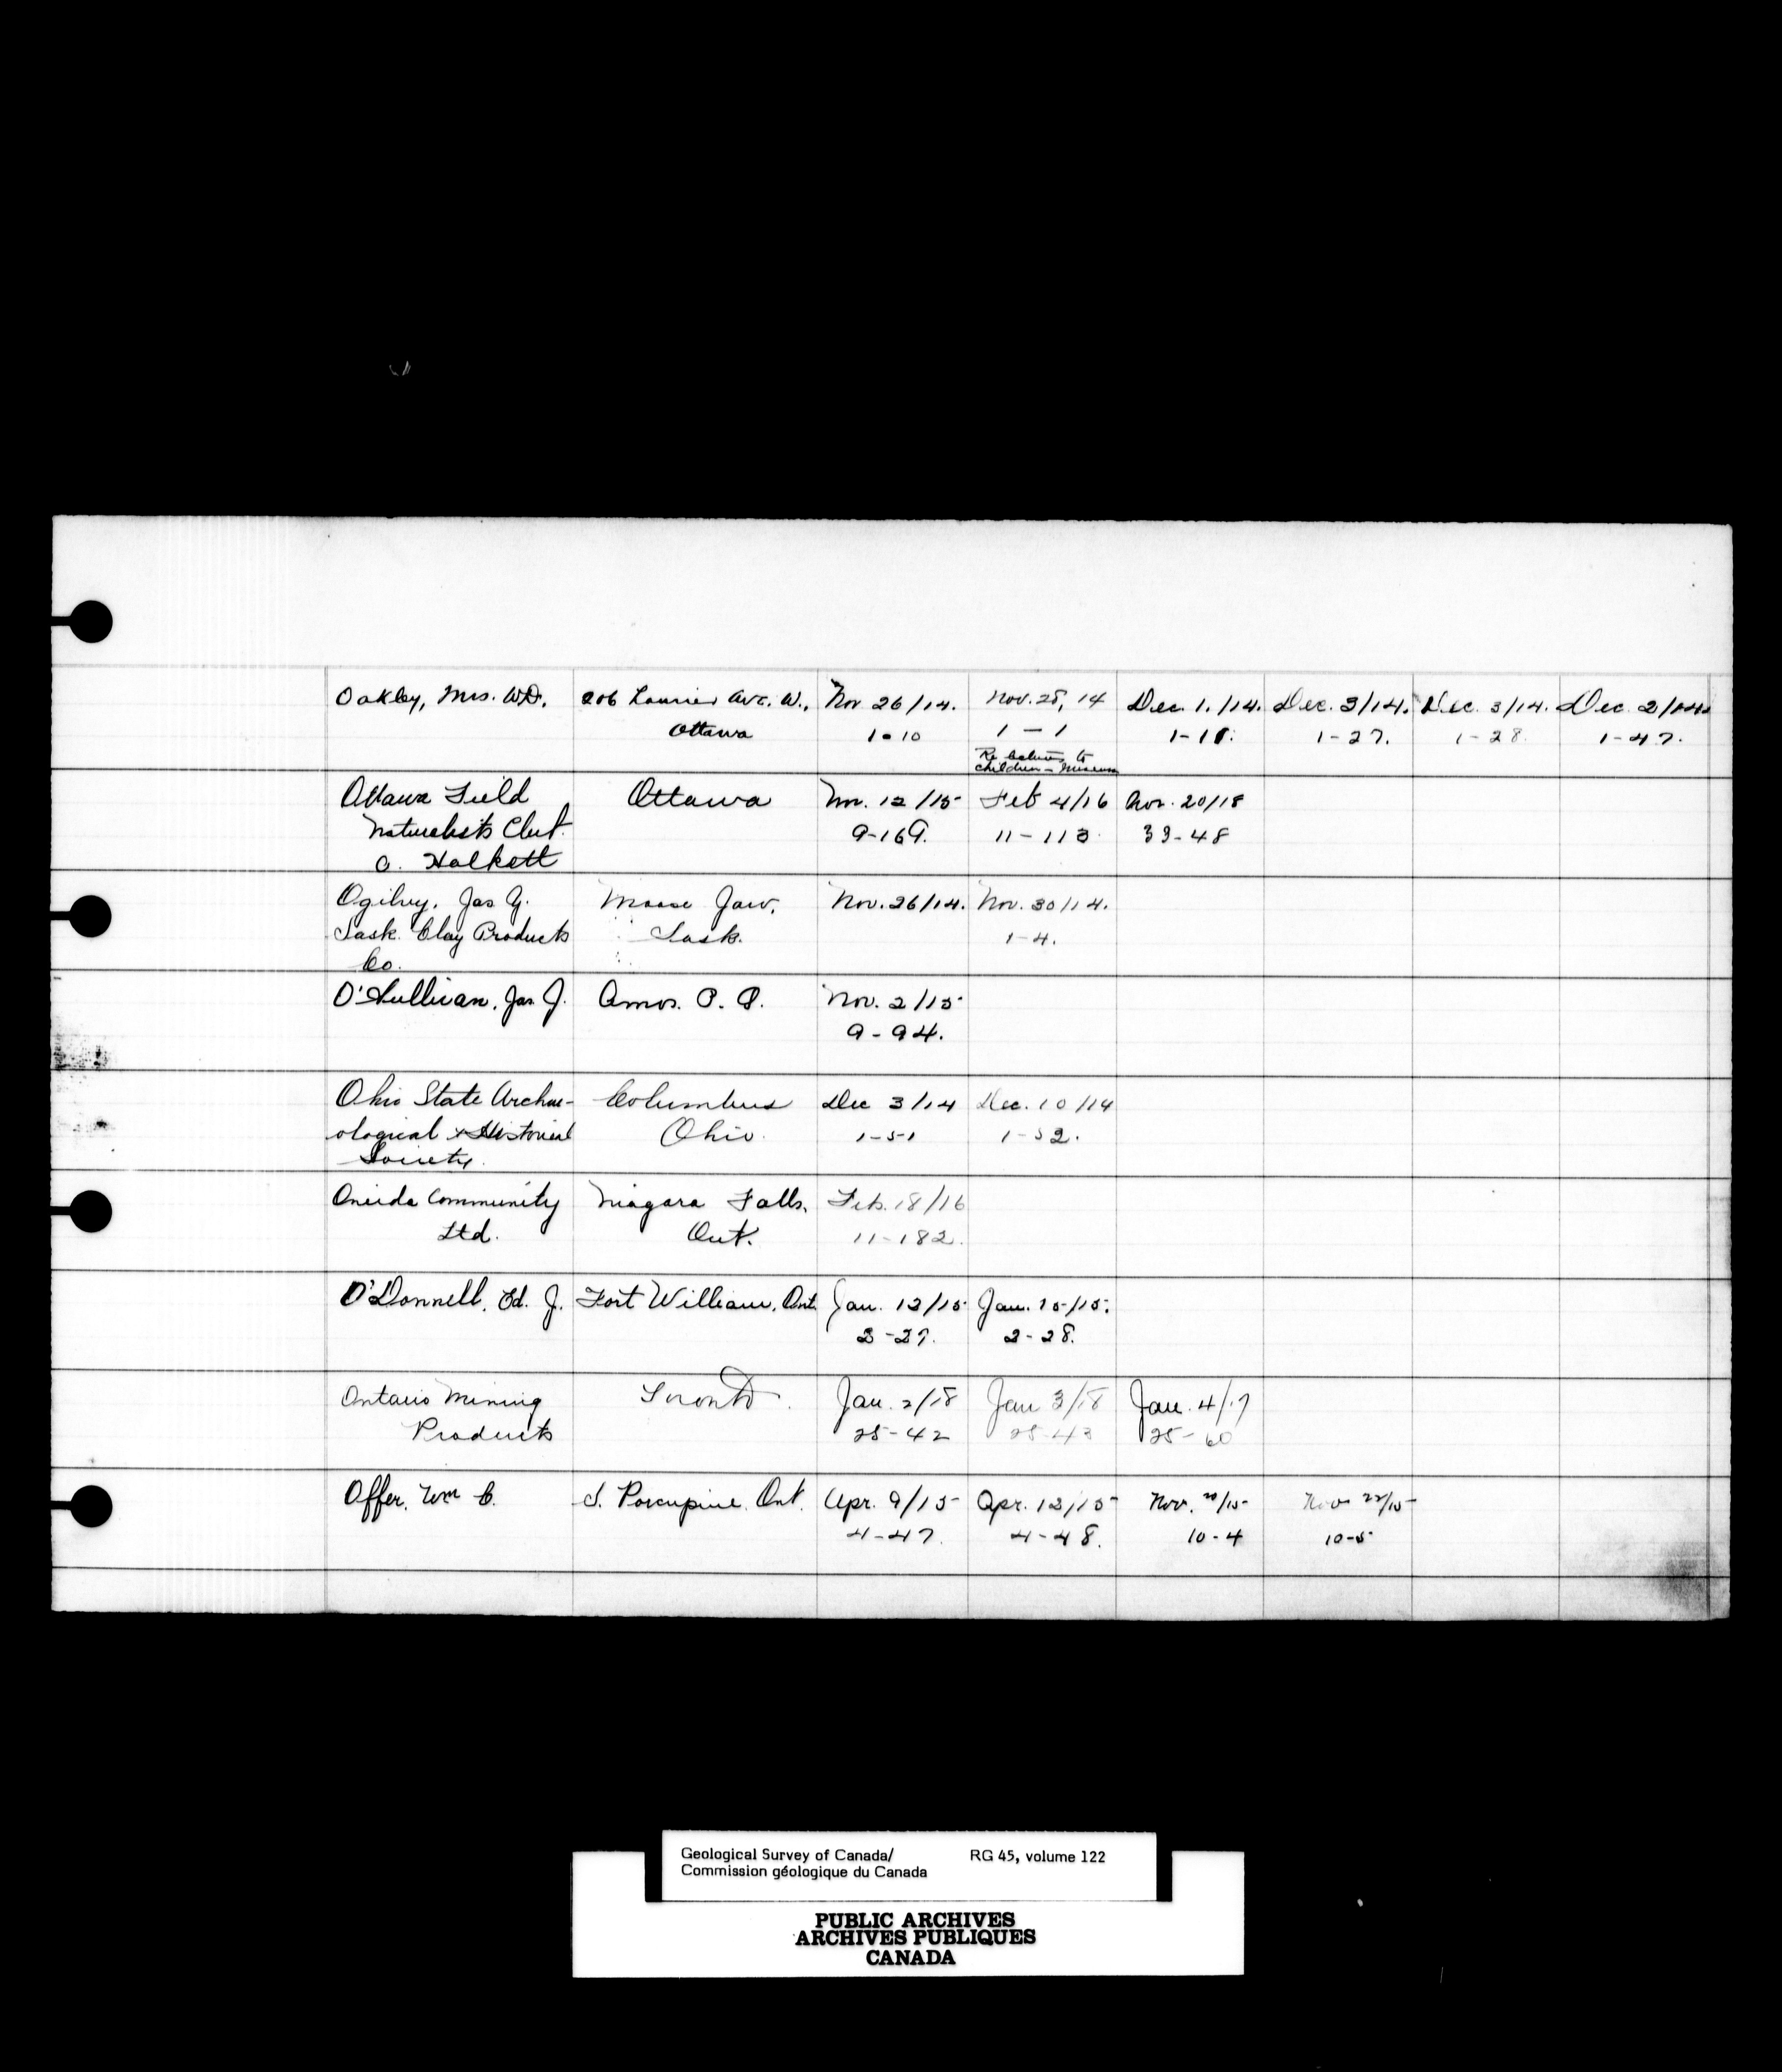 Oakley, Mrs. W.D. 206 Laurier Ave. W., Nov 26/14. Nov. 28, 14 Dec. 1./14. Dec. 3/14. Dec. 3/14. Dec. 2/14
Ottawa 1-10 1-1 1-11. 1-27. 1-28. 1-47.
Re lectures to
children - Museum
Ottawa Field Ottawa Nov. 12/15 Feb 4/16 Nov. 20/18
Naturalists Club. 9-169. 11-113. 33-48
A. Halkett
Ogilvy, Jas G. Moose Jaw, Nov. 26/14. Nov. 30/14.
Sask. Clay Products Sask. 1-4.
Co.
O'Sullivan, Jas. J. Amos. P. Q. Nov. 2/15
9-94.
Ohio State Archae- Columbus Dec 3/14 Dec. 10/14
ological & Historical Ohio. 1-51 1-52.
Society.
Oneida Community Niagara Falls, Feb. 18/16
Ltd. Ont. 11-182.
O'Donnell, Ed. J. Fort William, Ont. Jan. 12/15 Jan. 15/15.
2-27. 2-28.
Ontario Mining Toronto. Jan. 2/18 Jan 3/18 Jan. 4/17
Products 25-42 25-43 25-60
Offer, Wm C. S. Porcupine, Ont. Apr. 9/15 Apr. 13/15 Nov. 20/15 Nov 22/15
4-47. 4-48. 10-4 10-5
Geological Survey of Canada/ RG 45, volume 122
Commission géologique du Canada
PUBLIC ARCHIVES
ARCHIVES PUBLIQUES
CANADA